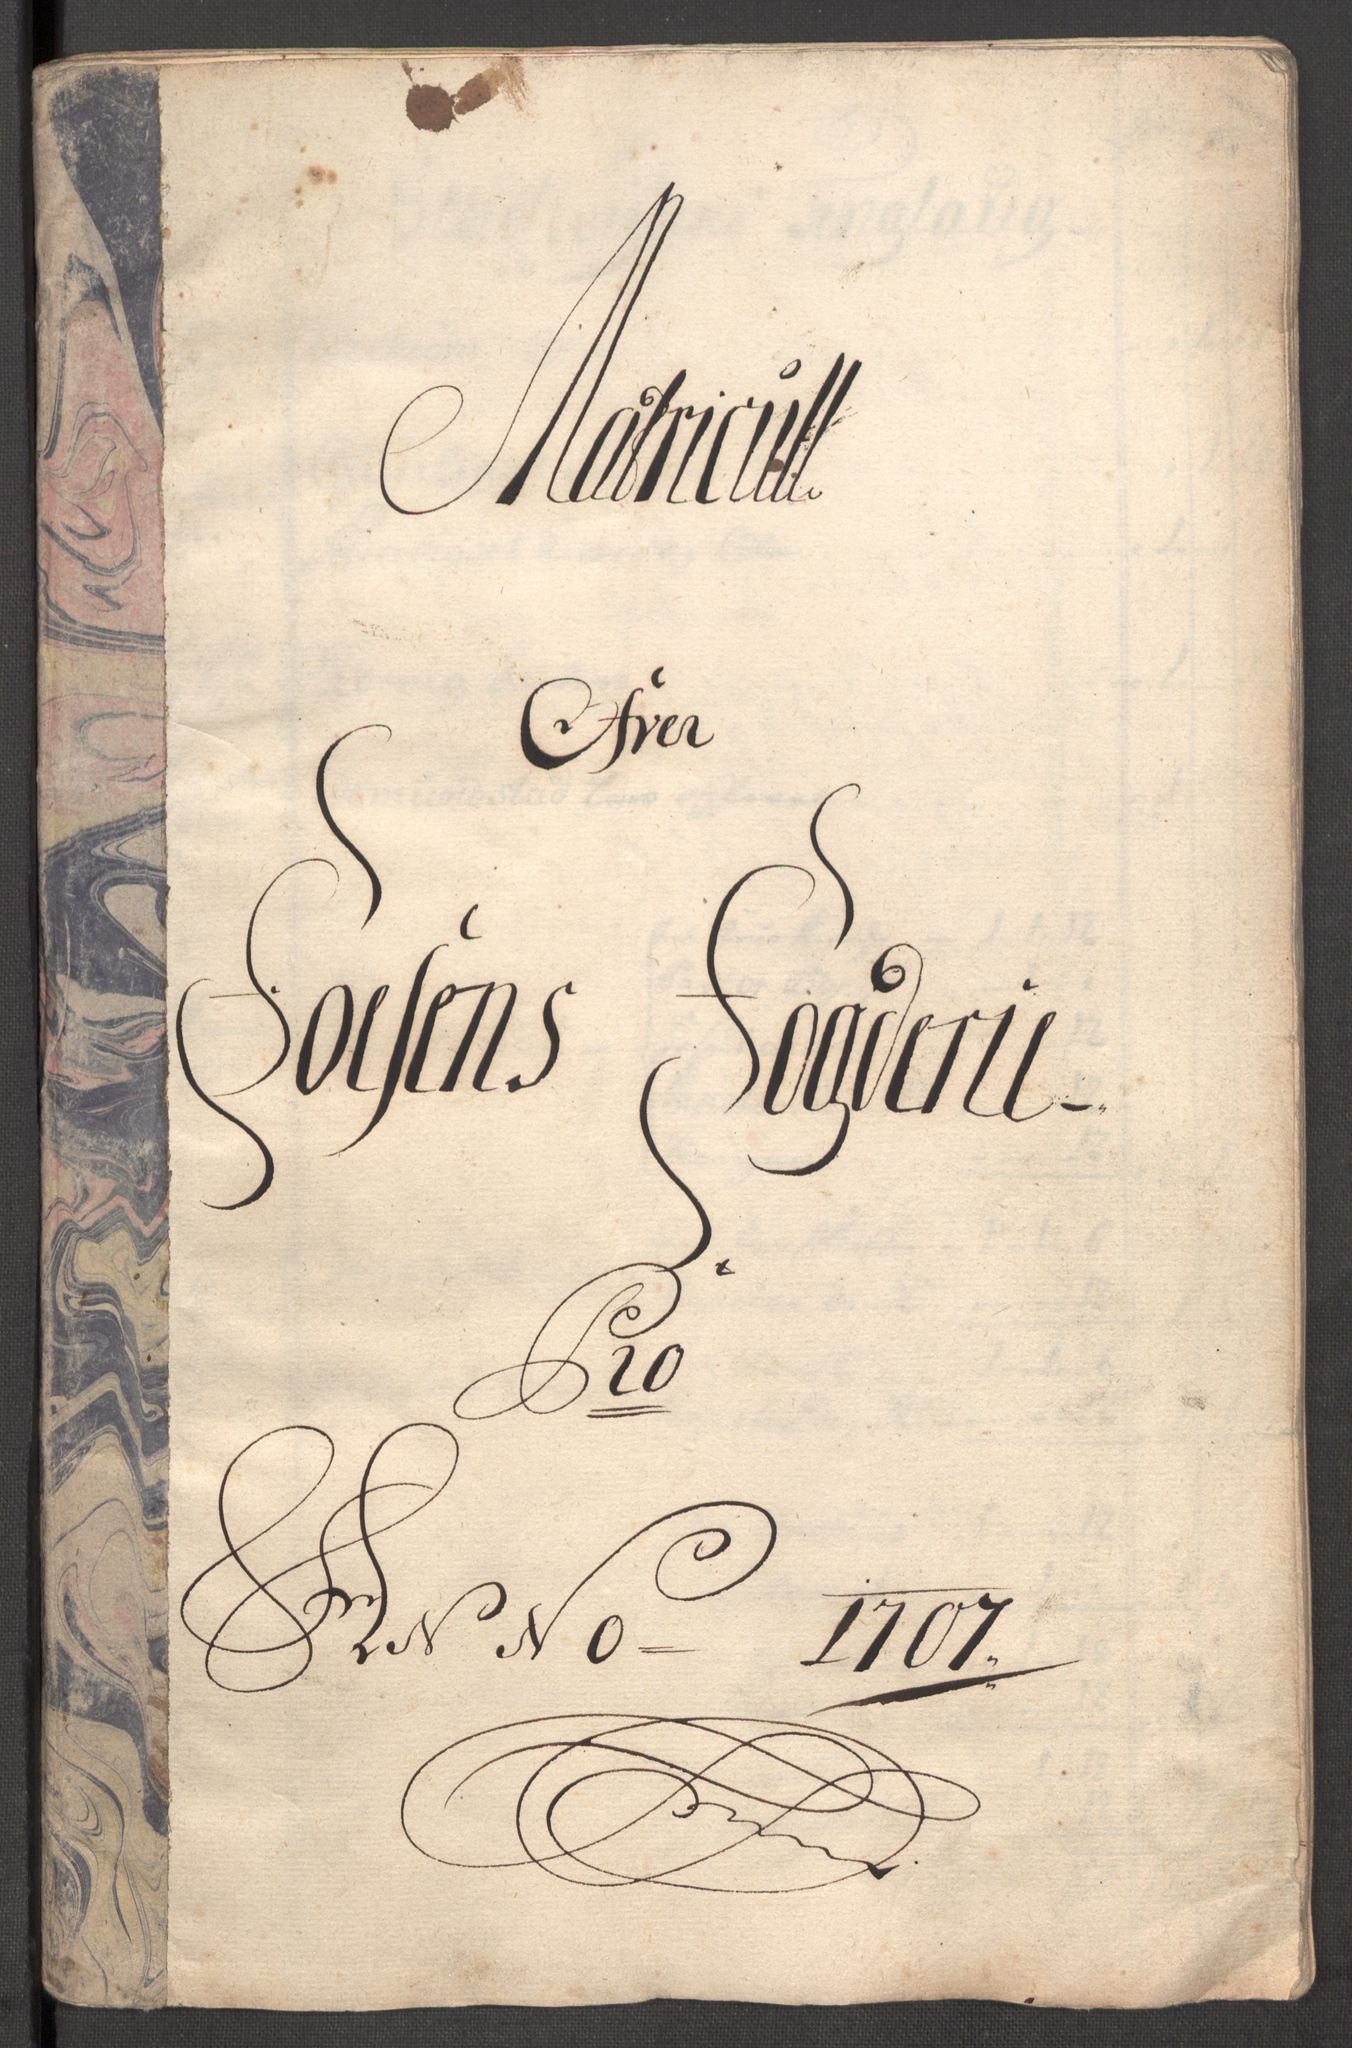 Matricull
Ofver
Fosens Fogderie
Pro
Anno 1707